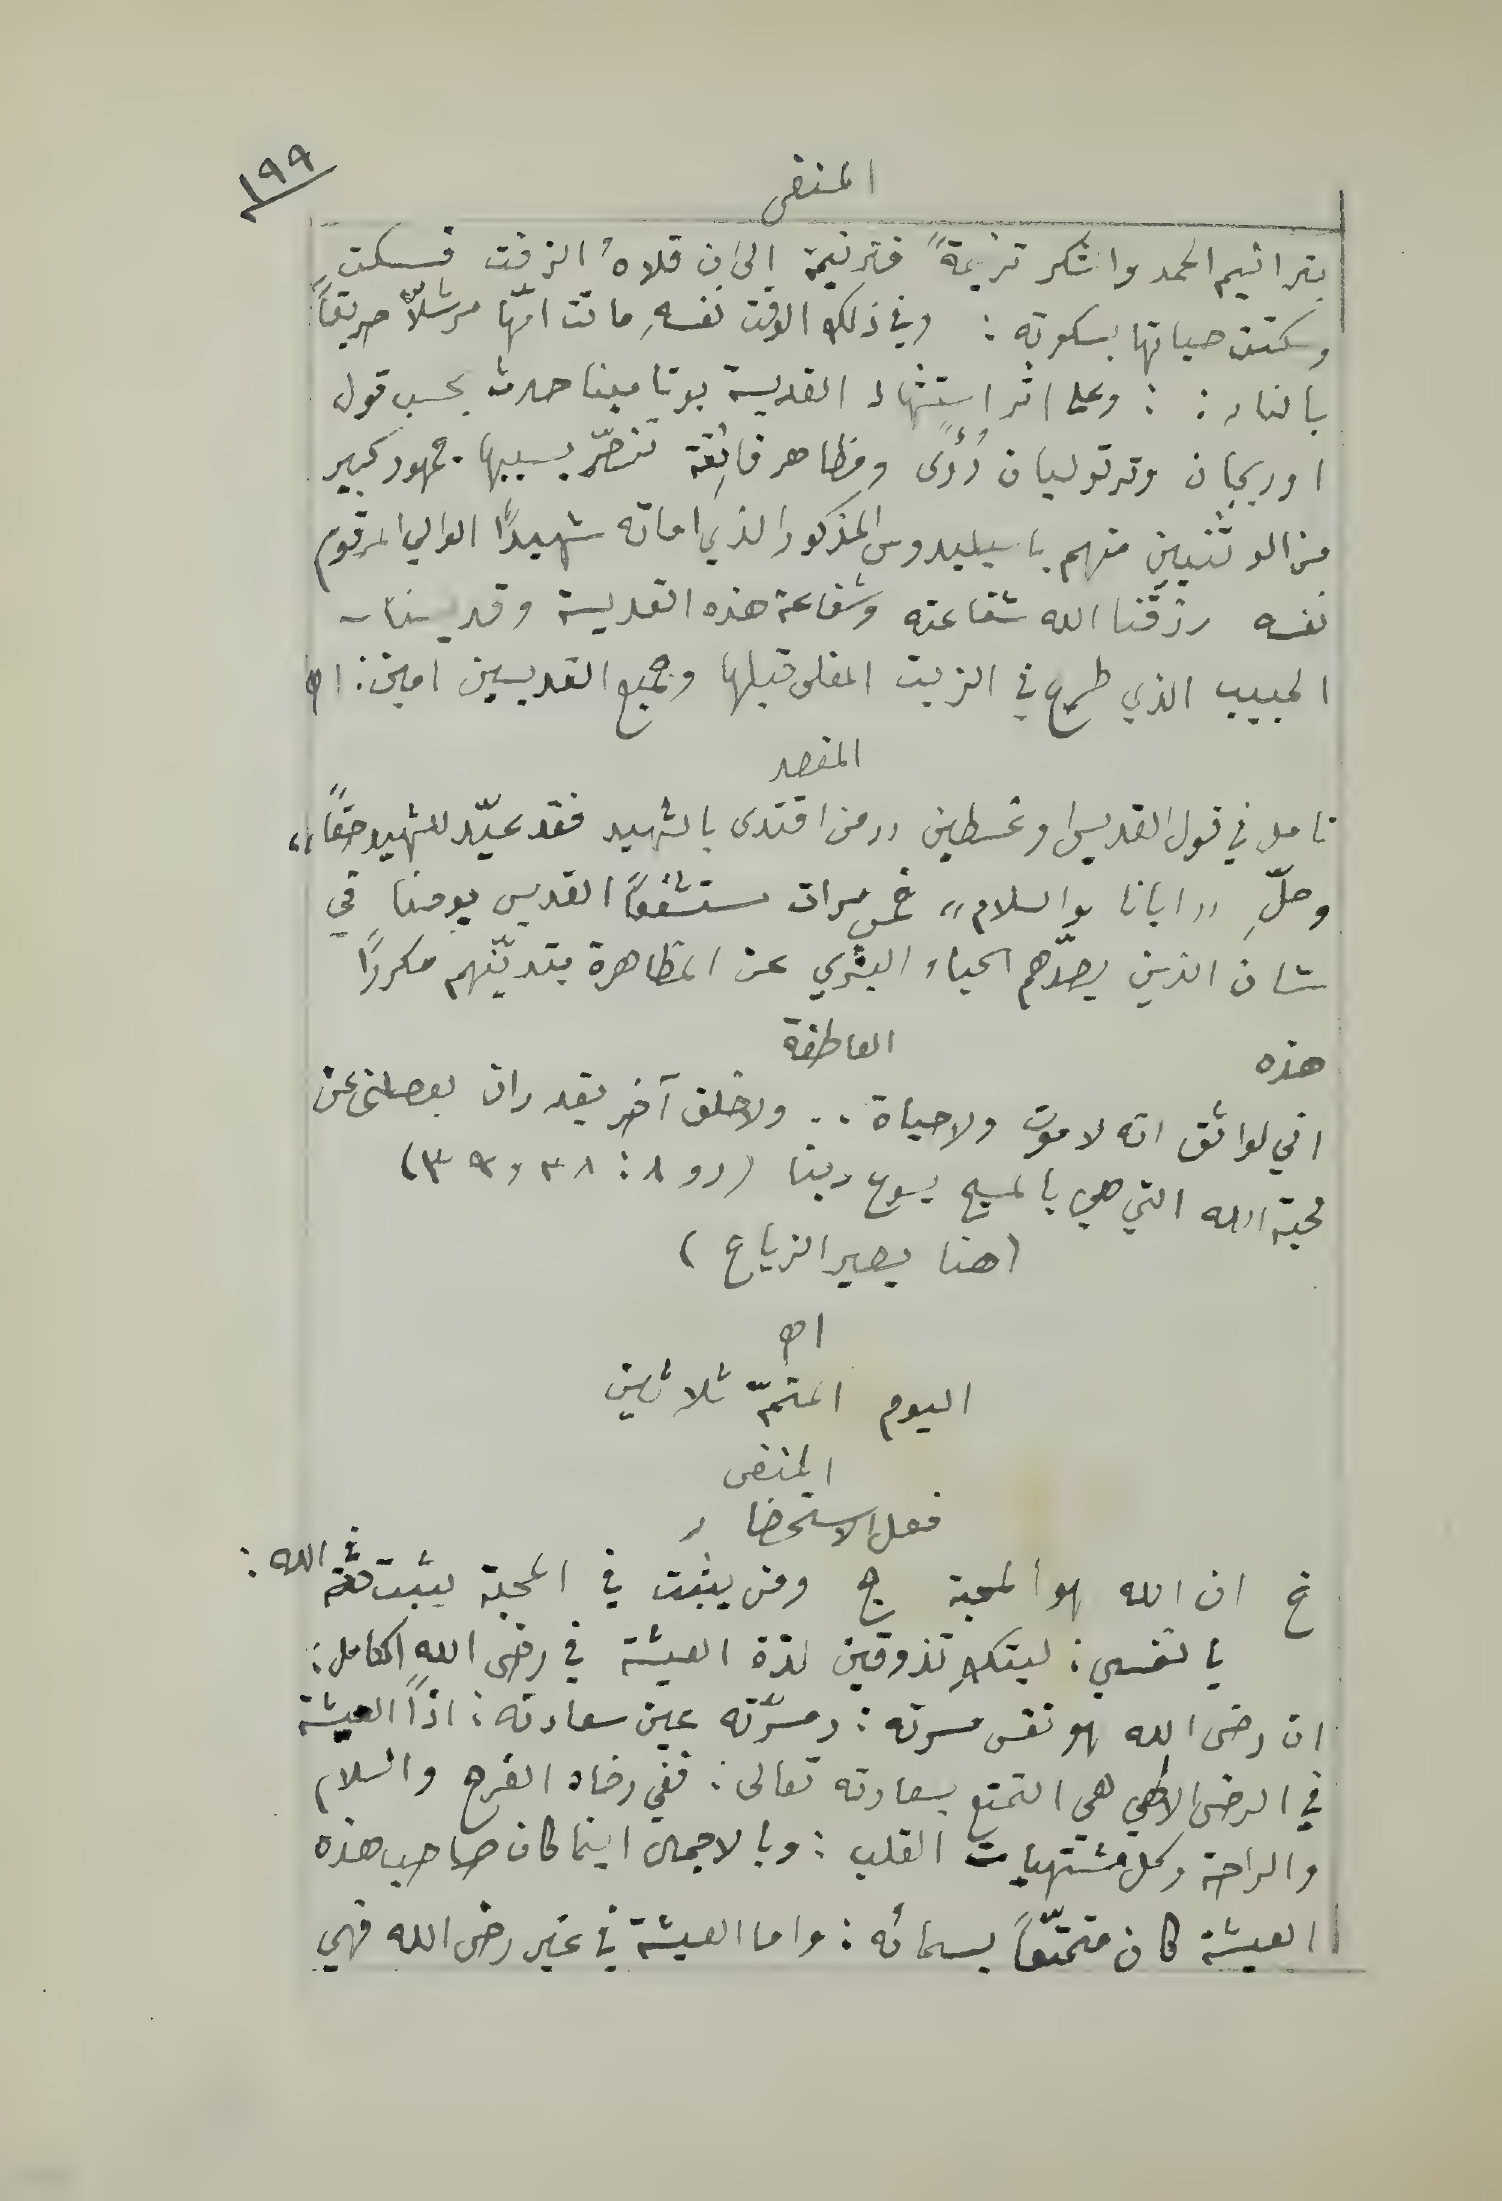 ١٩٩
المنفى
بترانيم الحمد والشكر ترنيمةً فترنيمة الى ان قلاهُ الزفت فسكت
وسكتت حياتها بسكوته : وفي ذلك الوقت نفسهِ ماتت امّها مرشلاّ حريقاً
بالنار : : وعلى اثر استشهاد القديسة بوتامينا حدث بحسب قول
اوريجان وترتوليان رُؤًى ومظاهر فائقة تنصّر بسببها جمهور كبير
من الوثنيين منهم باسيليدوس المذكور الذي اماته شهيدًا الوالي المرقوم
نفسه رزقنا الله شفاعته وشفاعة هذه القديسة وقديسنا
الحبيب الذي طرح في الزيت المغلى قبلها وجميع القديسين امين : اھ
المقصد
تامل في قول القديس اوغسطين ,,ومن اقتدى بالشهيد فقد عيّد للشهيد حقاً,,
وصلِّ ,,ابانا والسلام,, خمس مرات مستشفعاً القديس يوحنا في
شان الذين يصدّهم الحياء البشري عن المظاهرة بتديّنهم مكررًا
هذه العاطفة
اني لواثق انه لا موت ولا حياة .. ولا خلق آخر يقدر ان يفصلني عن
محبة الله التي هي بالمسيح يسوع ربنا (رو ٨ : ٣٨ و ٣٩)
(هنا يصير الزياح)
اھ
اليوم المتمّ ثلاثين
المنفى
فعل الاستحضار
خ ان الله هو المحبة ج ومن يثبت في المحبة يثبت في الله :
يا نفسي : ليتكِ تذوقين لذة العيشة في رضى اللهِ الكامل :
ان رضى الله هو نفس مسرته : ومسرّته عين سعادته : اذاً العيشة
في الرضى الالهي هي التمتع بسعادته تعالى : ففي رضاه الفرح والسلام
والراحة وكل مشتهيات القلب : وبالاجمال اينما كان صاحب هذه
العيشة كان متمتّعاً بسمائه : واما العيشة في غير رضى الله فهي